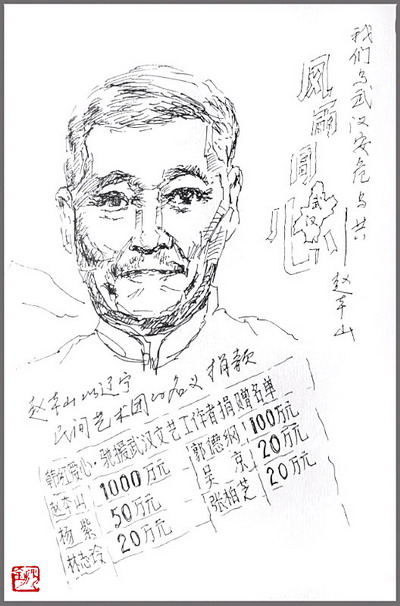 我们与武汉安危与共
赵本山
风雨同心
武汉
赵本山以辽宁
民间艺术团的名义捐款
韩红爱心·驰援武汉文艺工作者捐赠名单
赵本山 1000万元 郭德纲 100万元
杨紫 50万元 吴京 20万元
林志玲 20万元 张柏芝 20万元